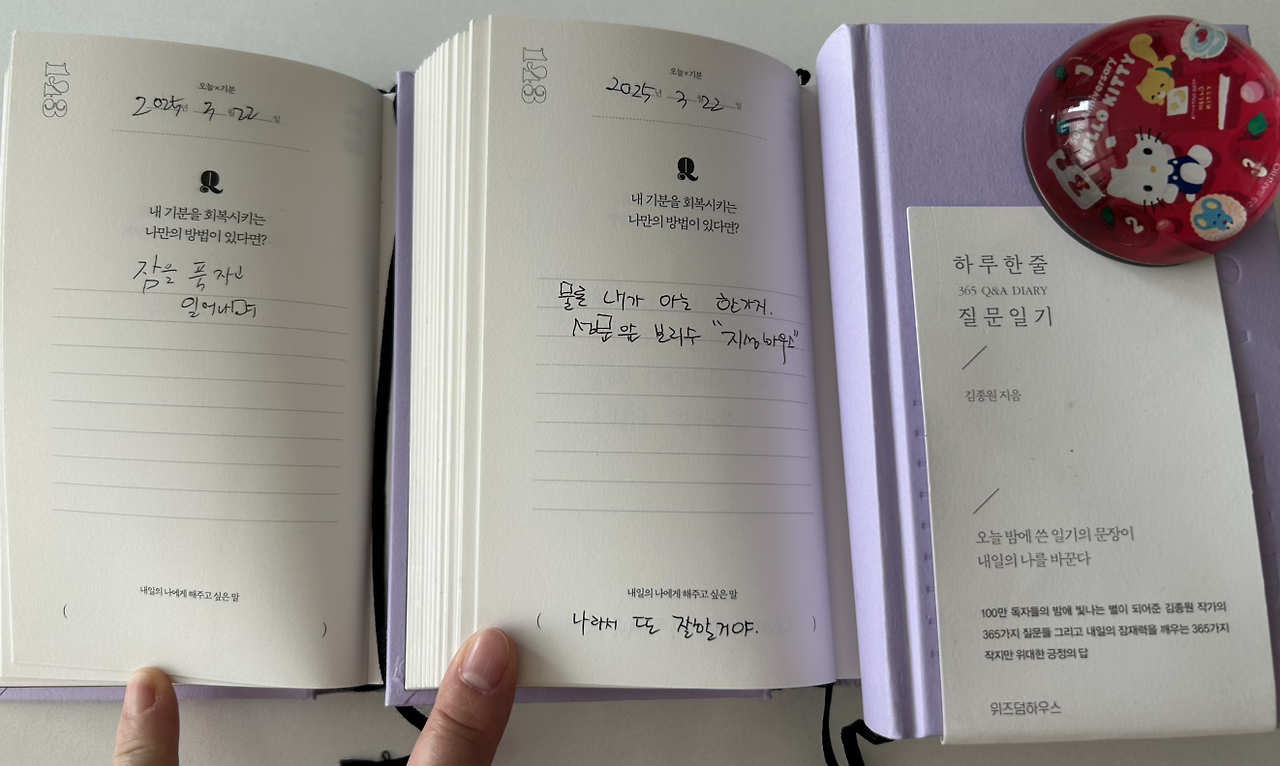 123
오늘×기분
2025년 3월 22일
Q
내 기분을 회복시키는
나만의 방법이 있다면?
잠을 푹 자고
일어나면
내일의 나에게 해주고 싶은 말
( )
123
오늘×기분
2025년 3월 22일
Q
내 기분을 회복시키는
나만의 방법이 있다면?
내가 아는 한가지.
보리수 "지성하우스"
내일의 나에게 해주고 싶은 말
( 나라서 또 잘할거야. )
하루한줄
365 Q&A DIARY
질문일기
김종원 지음
오늘 밤에 쓴 일기의 문장이
내일의 나를 바꾼다
100만 독자들의 밤에 빛나는 별이 되어준 김종원 작가의
365가지 질문들 그리고 내일의 잠재력을 깨우는 365가지
작지만 위대한 긍정의 답
위즈덤하우스
Anniversary
HELLO KITTY